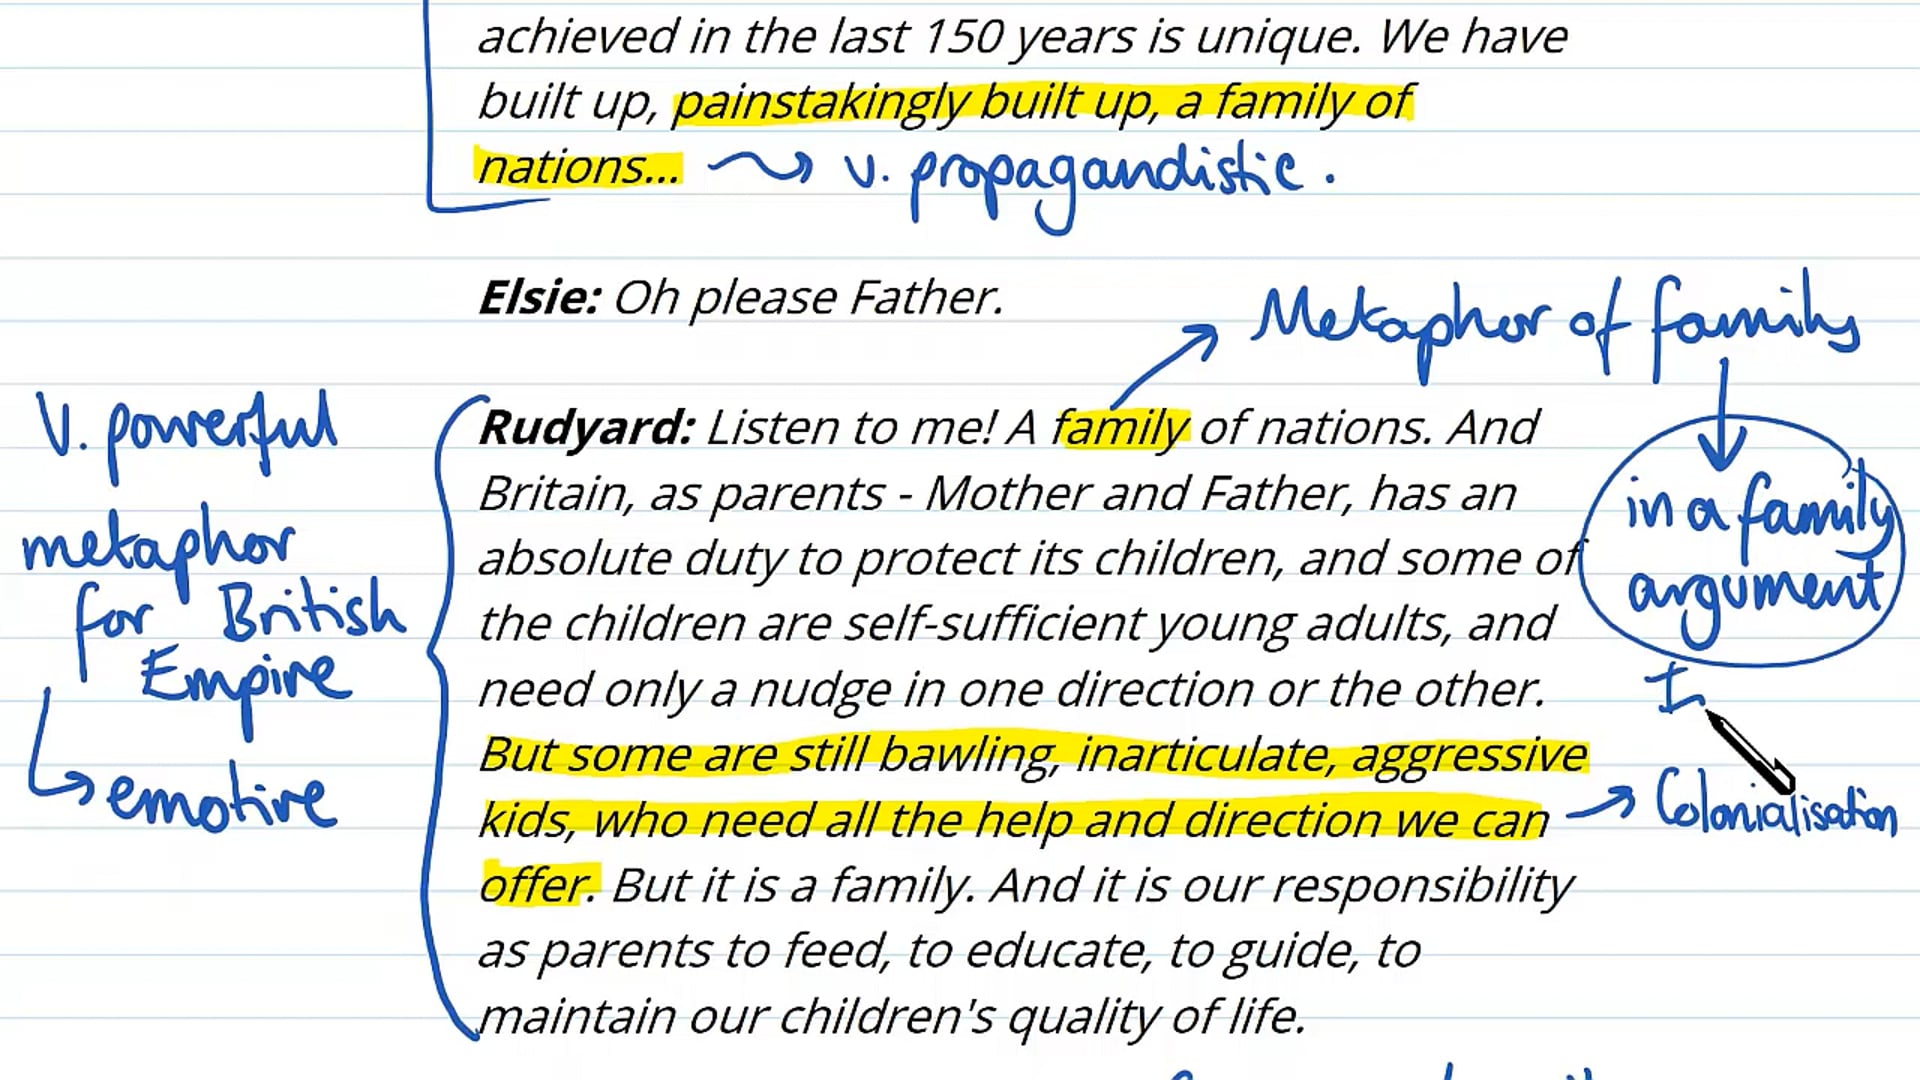 achieved in the last 150 years is unique. We have
built up, painstakingly built up, a family of
nations... v. propagandistic.
Elsie: Oh please Father.
Metaphor of family
in a family
argument
V. powerful
metaphor
for British
Empire
emotive
Rudyard: Listen to me! A family of nations. And
Britain, as parents - Mother and Father, has an
absolute duty to protect its children, and some of
the children are self-sufficient young adults, and
need only a nudge in one direction or the other.
But some are still bawling, inarticulate, aggressive
kids, who need all the help and direction we can
offer. But it is a family. And it is our responsibility
as parents to feed, to educate, to guide, to
maintain our children's quality of life.
Colonialisation